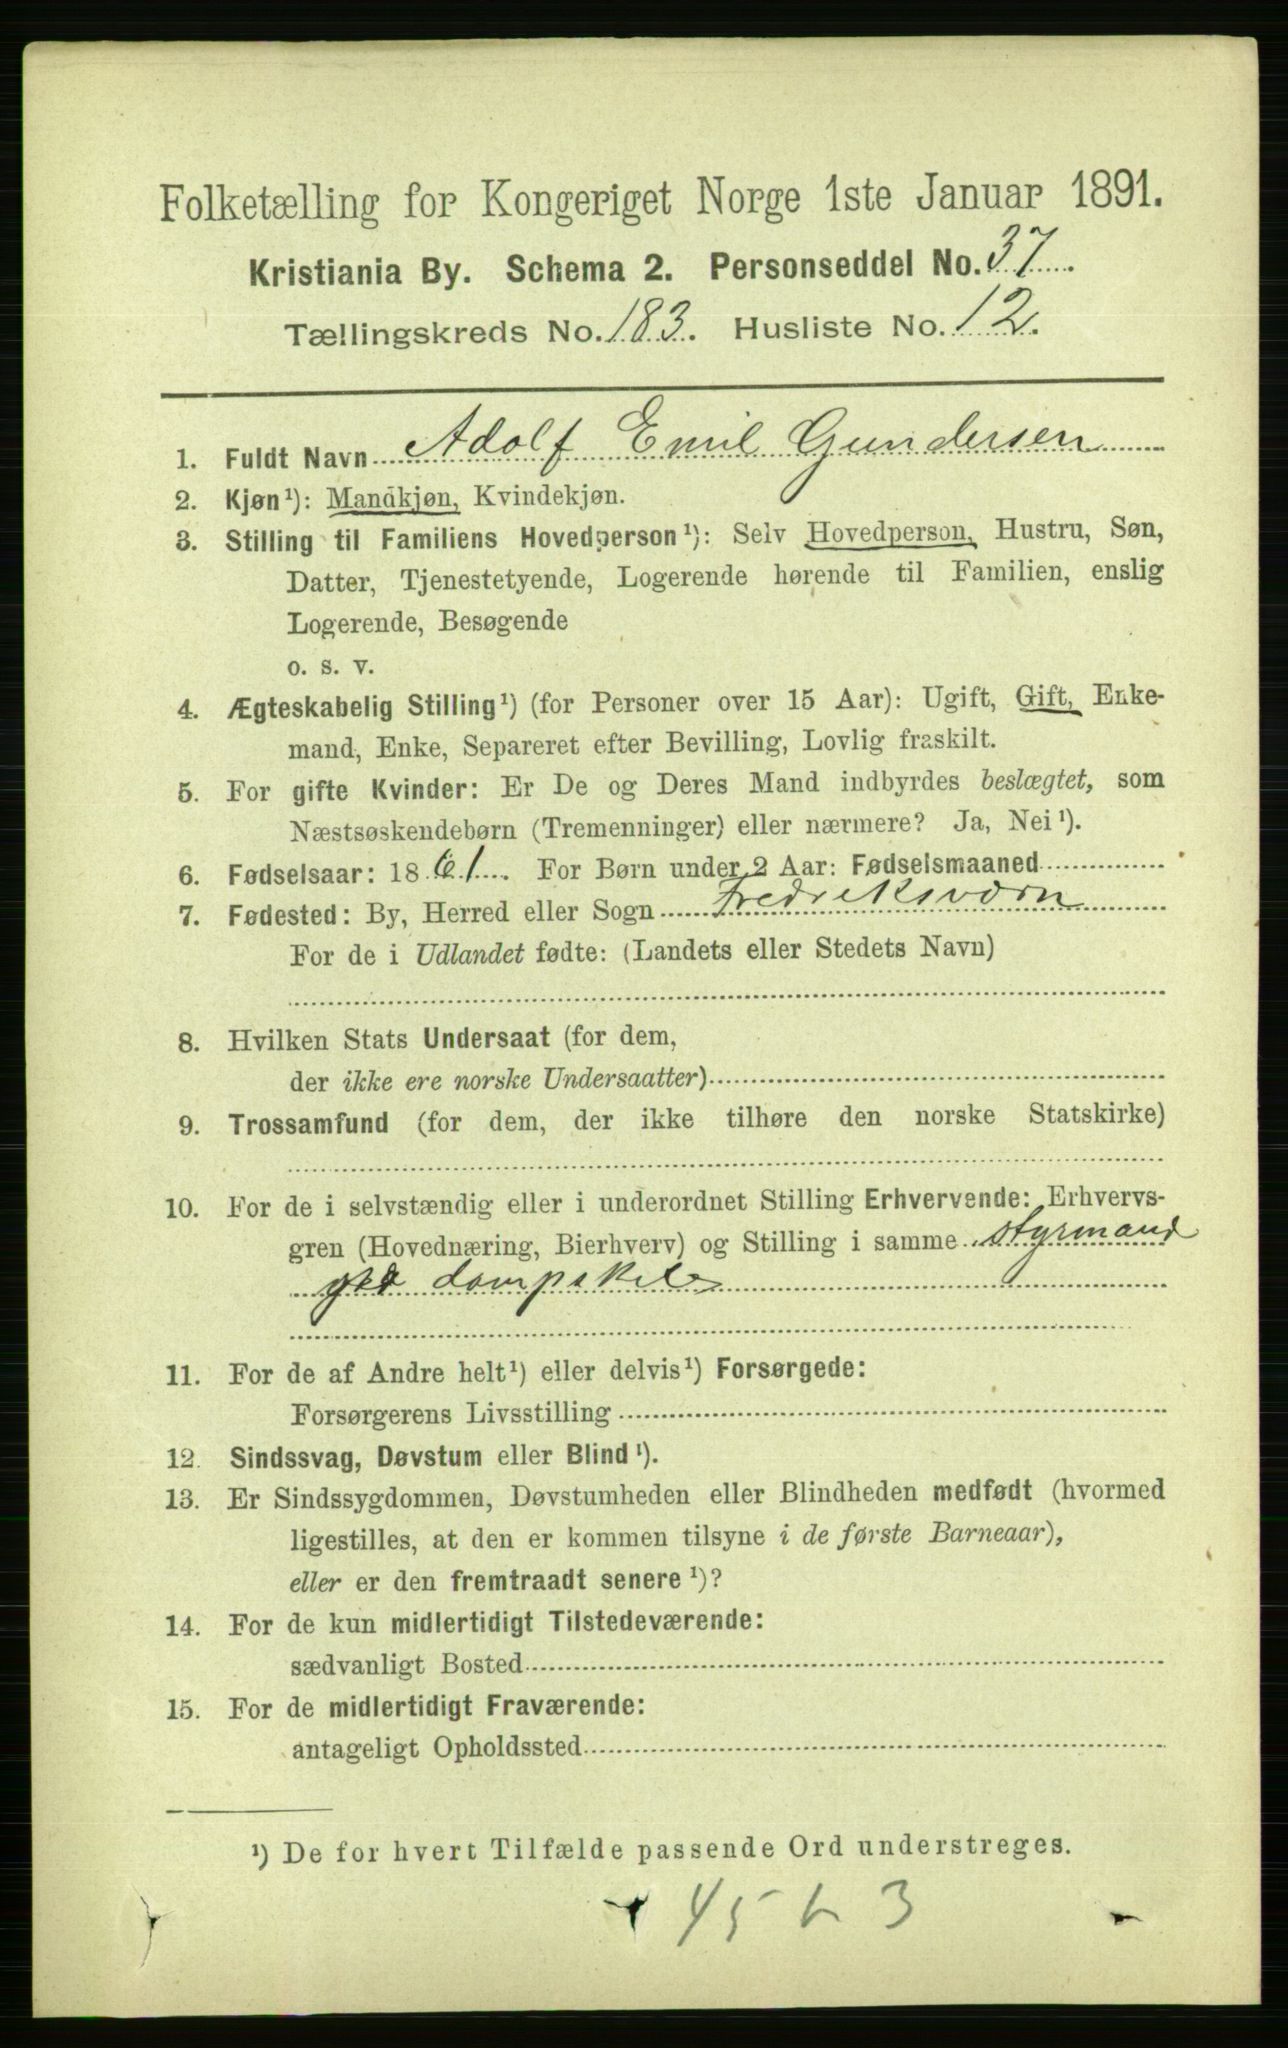 Folketælling for Kongeriget Norge 1ste Januar 1891.
Kristiania By. Schema 2. Personseddel No. 37.
Tællingskreds No. 183. Husliste No. 12.
1. Fuldt Navn Adolf Emil Gundersen
2. Kjøn¹): Mandkjøn, Kvindekjøn.
3. Stilling til Familiens Hovedperson¹): Selv Hovedperson, Hustru, Søn,
Datter, Tjenestetyende, Logerende hørende til Familien, enslig
Logerende, Besøgende
o. s. v.
4. Ægteskabelig Stilling¹) (for Personer over 15 Aar): Ugift, Gift, Enke-
mand, Enke, Separeret efter Bevilling, Lovlig fraskilt.
5. For gifte Kvinder: Er De og Deres Mand indbyrdes beslægtet, som
Næstsøskendebørn (Tremenninger) eller nærmere? Ja, Nei¹).
6. Fødselsaar: 1861. For Børn under 2 Aar: Fødselsmaaned
7. Fødested: By, Herred eller Sogn Fredriksværn
For de i Udlandet fødte: (Landets eller Stedets Navn)
8. Hvilken Stats Undersaat (for dem,
der ikke ere norske Undersaatter)
9. Trossamfund (for dem, der ikke tilhøre den norske Statskirke)
10. For de i selvstændig eller i underordnet Stilling Erhvervende: Erhvervs-
gren (Hovednæring, Bierhverv) og Stilling i samme styrmand
11. For de af Andre helt¹) eller delvis¹) Forsørgede:
Forsørgerens Livsstilling
12. Sindssvag, Døvstum eller Blind¹).
13. Er Sindssygdommen, Døvstumheden eller Blindheden medfødt (hvormed
ligestilles, at den er kommen tilsyne i de første Barneaar),
eller er den fremtraadt senere¹)?
14. For de kun midlertidigt Tilstedeværende:
sædvanligt Bosted
15. For de midlertidigt Fraværende:
antageligt Opholdssted
¹) De for hvert Tilfælde passende Ord understreges.